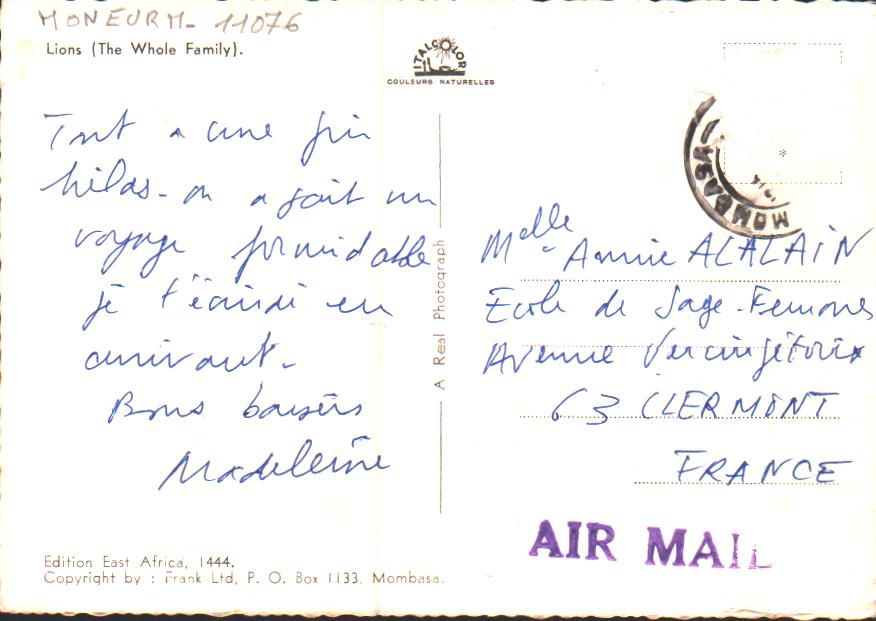 MONEURM- 11076
Lions (The Whole Family).
ITALCOLOR
COULEURS NATURELLES
Tout a une fin
hélas- on a fait un
voyage formidable
je t'écirai en
arrivant-
Bons baisers
Madeleine
A Real Photograph
MOMBASA
Melle Annie ALALAIN
Ecole de Sage-Femmes
Avenue Vercingétorix
63 CLERMONT
FRANCE
AIR MAIL
Edition East Africa, 1444.
Copyright by : Frank Ltd, P. O. Box 1133, Mombasa.